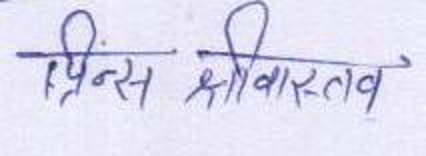 प्रिन्स श्रीवास्तव